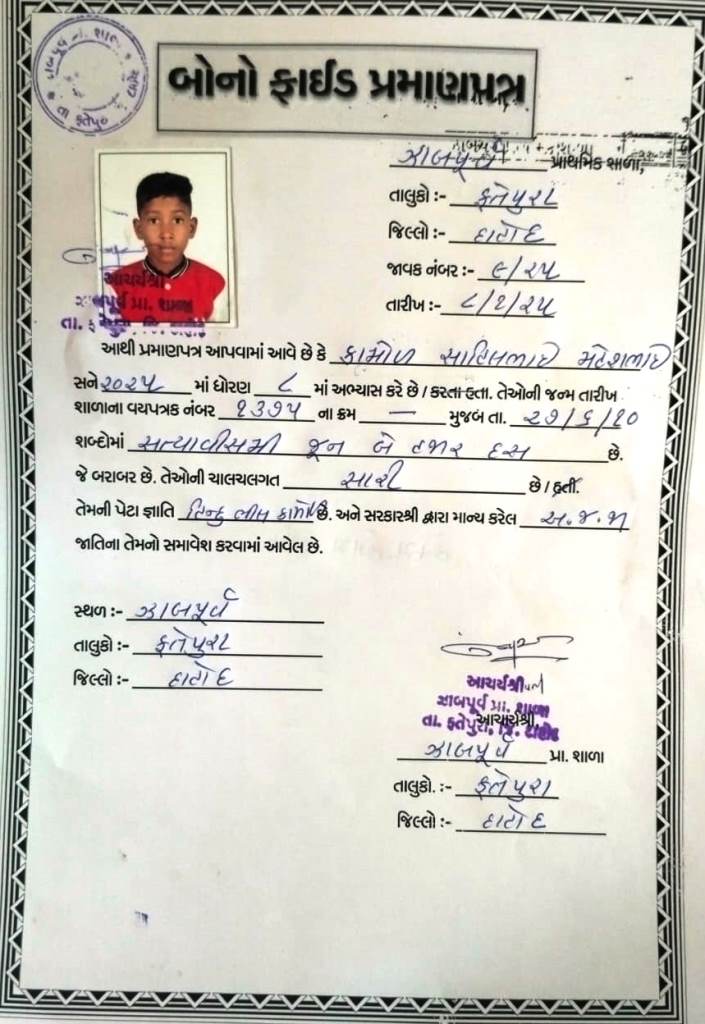 બોનો ફાઈડ પ્રમાણપત્ર
ઝાબપૂર્વ પ્રાથમિક શાળા,
તાલુકો :- ફતેપુરા
જિલ્લો :- દાહોદ
જાવક નંબર :- ૯/૨૫
તારીખ :- ૮/૧/૨૫
આચાર્યશ્રી
ઝાબપૂર્વ પ્રા. શાળા
આથી પ્રમાણપત્ર આપવામાં આવે છે કે કામોળ સાહિલભાઈ મહેશભાઈ
સને ૨૦૨૫ માં ધોરણ ૮ માં અભ્યાસ કરે છે / કરતા હતા. તેઓની જન્મ તારીખ
શાળાના વયપત્રક નંબર ૧૩૭૫ ના ક્રમ — મુજબ તા. ૨૭/૬/૧૦
શબ્દોમાં સત્યાવીસમી જૂન બે હજાર દસ છે.
જે બરાબર છે. તેઓની ચાલચલગત સારી છે / હતી.
તેમની પેટા જ્ઞાતિ હિન્દુ ભીલ છે. અને સરકારશ્રી દ્વારા માન્ય કરેલ અ.જ.જા
જાતિના તેમનો સમાવેશ કરવામાં આવેલ છે.
સ્થળ :- ઝાબપૂર્વ
તાલુકો :- ફતેપુરા
જિલ્લો :- દાહોદ
આચાર્યશ્રી
ઝાબપૂર્વ પ્રા. શાળા
તા. ફતેપુરા, જિ. દાહોદ
આચાર્યશ્રી,
ઝાબપૂર્વ પ્રા. શાળા
તાલુકો. :- ફતેપુરા
જિલ્લો :- દાહોદ